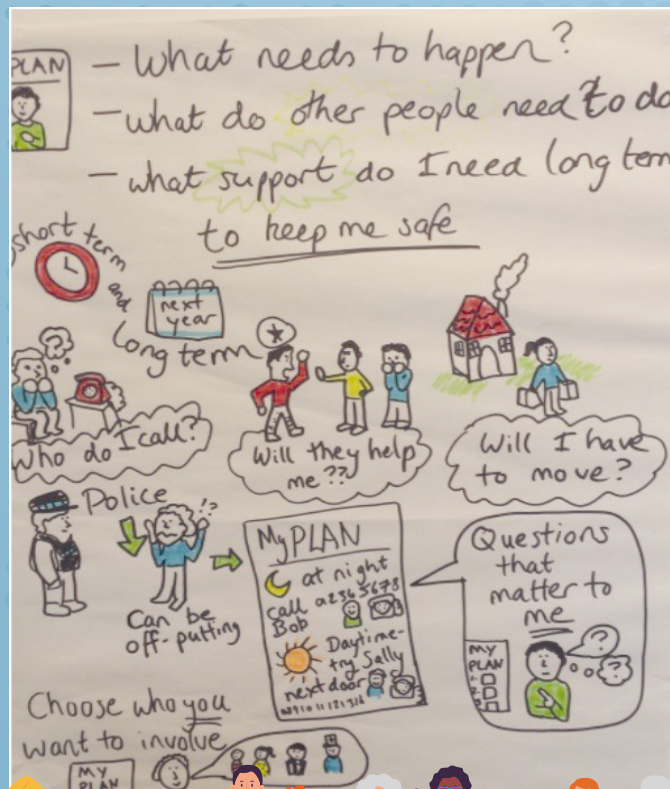 PLAN
- What needs to happen?
- what do other people need to do
- what support do I need long term
to keep me safe
short term
and
long term
next
year
Who do I call?
Will they help
me??
Will I have
to move?
Police
!?
Can be
off-putting
My PLAN
at night
call
Bob
Daytime-
try Sally
next door
Questions
that
matter to
me
?
?
MY
PLAN
Choose who you
want to involve
MY
PLAN